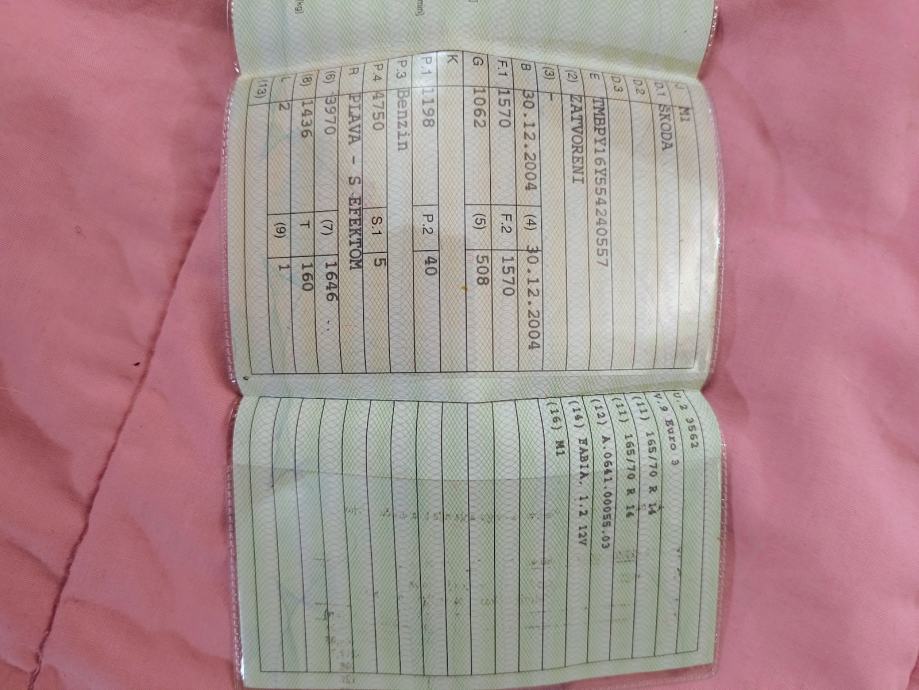 J M1
D.1 ŠKODA
D.2
D.3
E TMBPY16Y554240557
(2) ZATVORENI
(3) -
B 30.12.2004 (4) 30.12.2004
F.1 1570 F.2 1570
G 1062 (5) 508
K
P.1 1198 P.2 40
P.3 Benzin
P.4 4750 S.1 5
R PLAVA - S EFEKTOM
(6) 3970 (7) 1646
(8) 1436 T 160
L 2 (9) 1
(13)
U.2 3562
V.9 Euro 3
(11) 165/70 R 14
(11) 165/70 R 14
(12) A.0641.00055.03
(14) FABIA, 1.2 12V
(16) M1